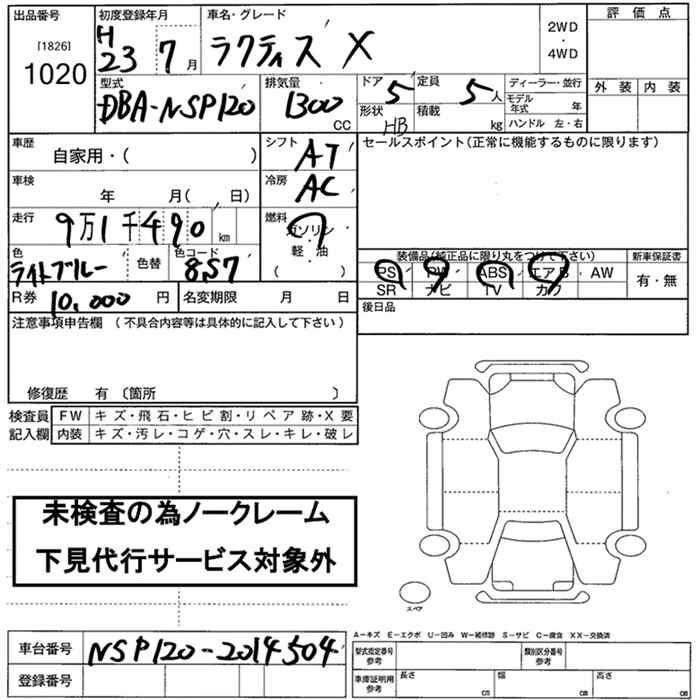 出品番号 初度登録年月 車名・グレード 評価点
[1826] 1020 H23 7月 ラクティス X 2WD・4WD
外装 内装
型式 排気量 ドア 定員 ディーラー・並行
DBA-NSP120 1300 CC 5 5人 モデル年式 年
形状 HB 積載 kg ハンドル 左・右
車歴 シフト セールスポイント(正常に機能するものに限ります)
自家用・( ) AT
車検 冷房
年 月( 日) AC
走行 燃料
9万1千490km ガソリン 軽油 ( )
色 色替 色コード 装備品(純正品に限り丸をつけて下さい) 新車保証書
ライトブルー 857 PS PW ABS エアB AW 有・無
SR ナビ TV カワ
R券 10,000円 名変期限 月 日 後日品
注意事項申告欄 (不具合内容等は具体的に記入して下さい)
修復歴 有 〔箇所 〕
検査員 FW キズ・飛石・ヒビ割・リペア跡・X要
記入欄 内装 キズ・汚レ・コゲ・穴・スレ・キレ・破レ
未検査の為ノークレーム
下見代行サービス対象外
スペア
A-キズ E-エクボ U-凹み W-補修跡 S-サビ C-腐食 XX-交換済
車台番号 NSP120-2014504
登録番号
型式指定番号 参考 類別区分番号 参考
車庫証明用 参考 長さ cm 幅 cm 高さ cm